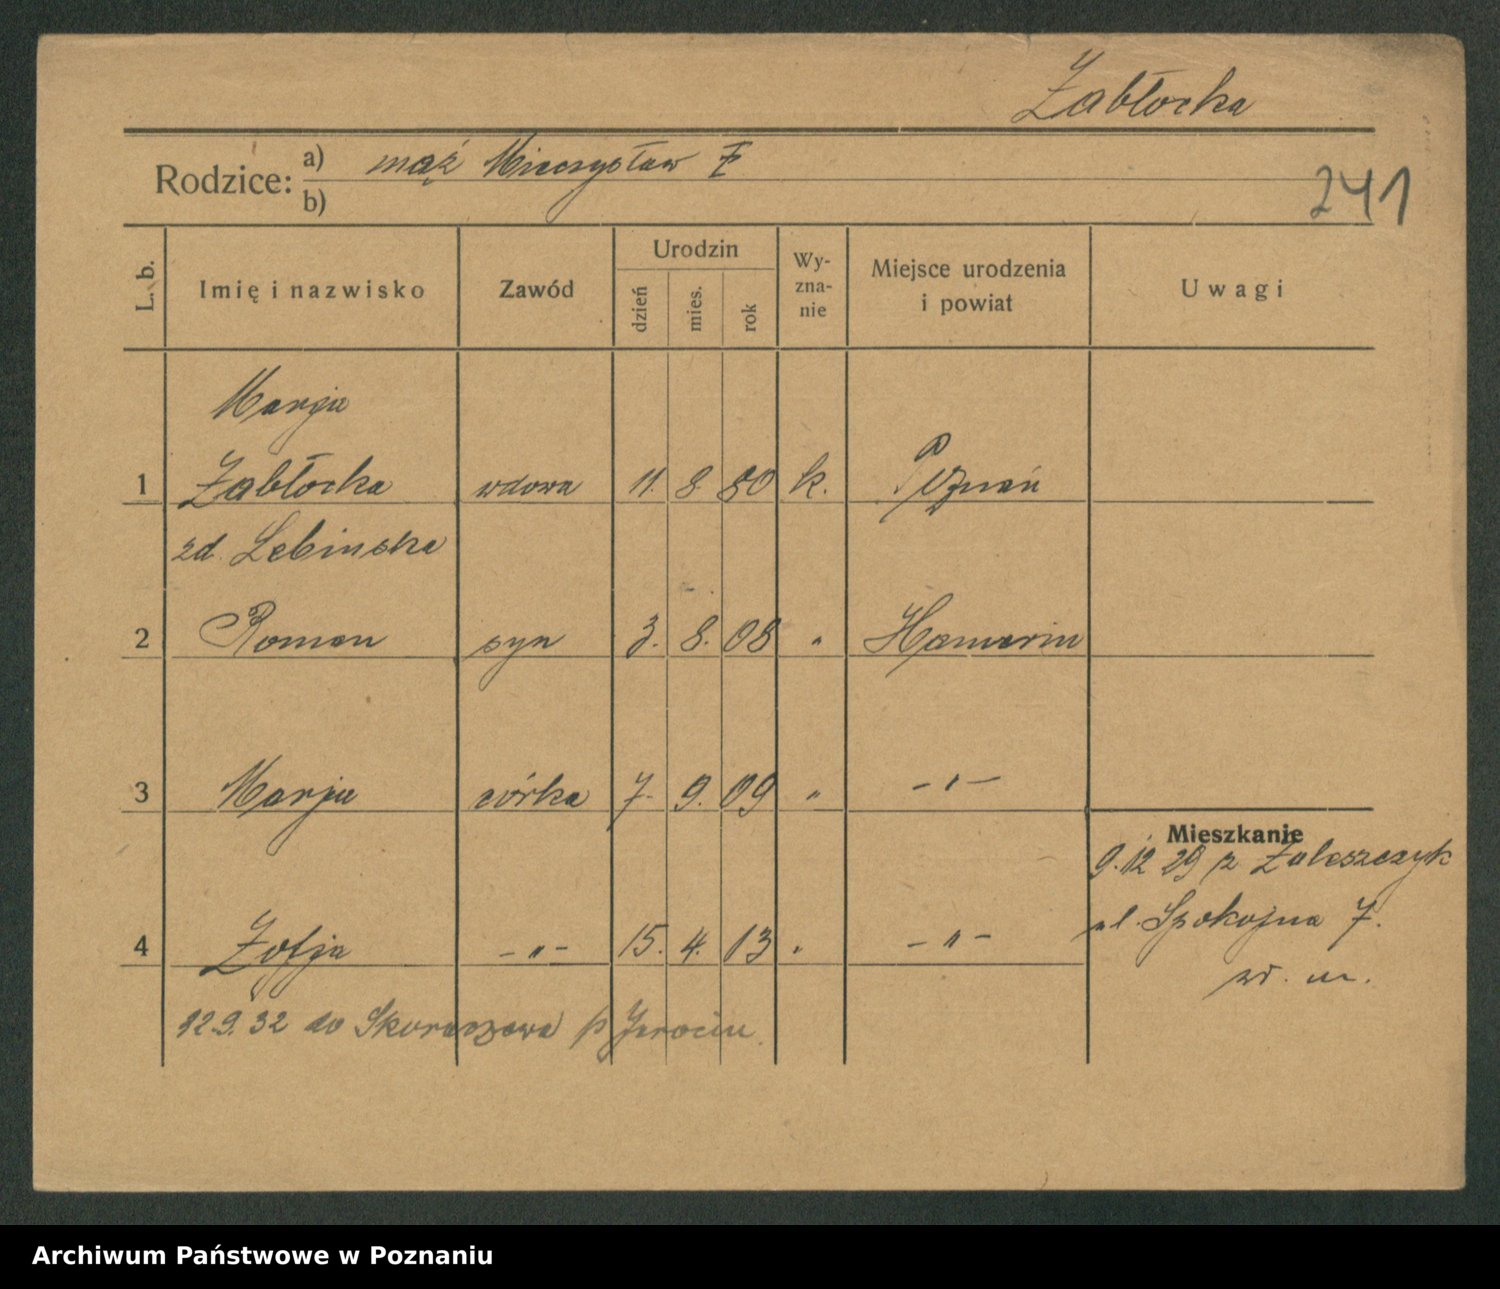 Żabłocka
Rodzice:
a) mąż Mieczysław Ż
b)
241
L. b.
Imię i nazwisko
Zawód
Urodzin
dzień
mies.
rok
Wy-
zna-
nie
Miejsce urodzenia
i powiat
Uwagi
Marja
1 Żabłocka wdowa 11. 8 80 k. Poznań
zd. Lebinska
2 Roman syn 3. 8. 08 " Hamerin
3 Marja córka 7. 9. 09 " -"-
Mieszkanie
9.12 29 z Zaleszczyk
ul. Spokojna 7.
4 Zofja -"- 15. 4. 13 " -"-
12.9.32 do Skoraczewa p Jarocin
Archiwum Państwowe w Poznaniu